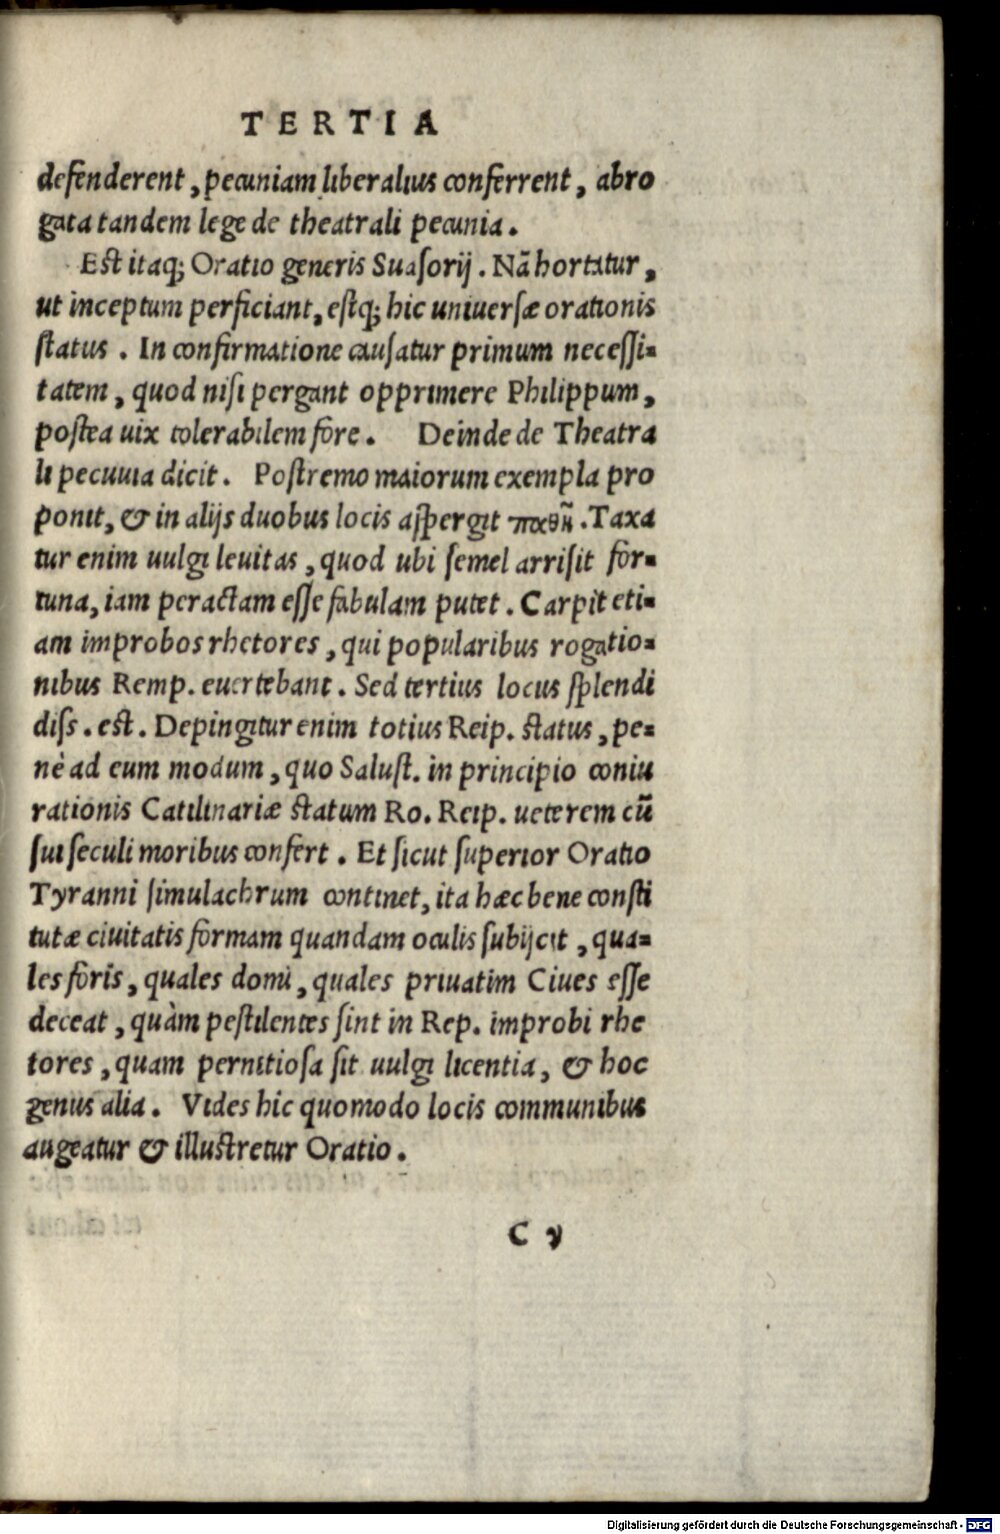 TERTIA
defenderent, pecuniam liberalius conferrent, abro
gata tandem lege de theatrali pecunia.
Est itaq; Oratio generis Suasorij. Nā hortatur,
ut inceptum perficiant, estq; hic uniuersæ orationis
status. In confirmatione causatur primum necessi=
tatem, quod nisi pergant opprimere Philippum,
postea uix tolerabilem fore. Deinde de Theatra
li pecuuia dicit. Postremo maiorum exempla pro
ponit, & in alijs duobus locis aspergit Taxa
tur enim uulgi leuitas, quod ubi semel arrisit for=
tuna, iam peractam esse fabulam putet. Carpit eti=
am improbos rhetores, qui popularibus rogatio=
nibus Remp. euertebant. Sed tertius locus splendi
diss. est. Depingitur enim totius Reip. status, pe=
nè ad eum modum, quo Salust. in principio coniu
rationis Catilinariæ statum Ro. Reip. ueterem cū
sui seculi moribus confert. Et sicut superior Oratio
Tyranni simulachrum continet, ita hæc bene consti
tutæ ciuitatis formam quandam oculis subijcit, qua=
les foris, quales domi, quales priuatim Ciues esse
deceat, quàm pestilentes sint in Rep. improbi rhe
tores, quam pernitiosa sit uulgi licentia, & hoc
genus alia. Vides hic quomodo locis communibus
augeatur & illustretur Oratio.
C v
Digitalisierung gefördert durch die Deutsche Forschungsgemeinschaft - DFG